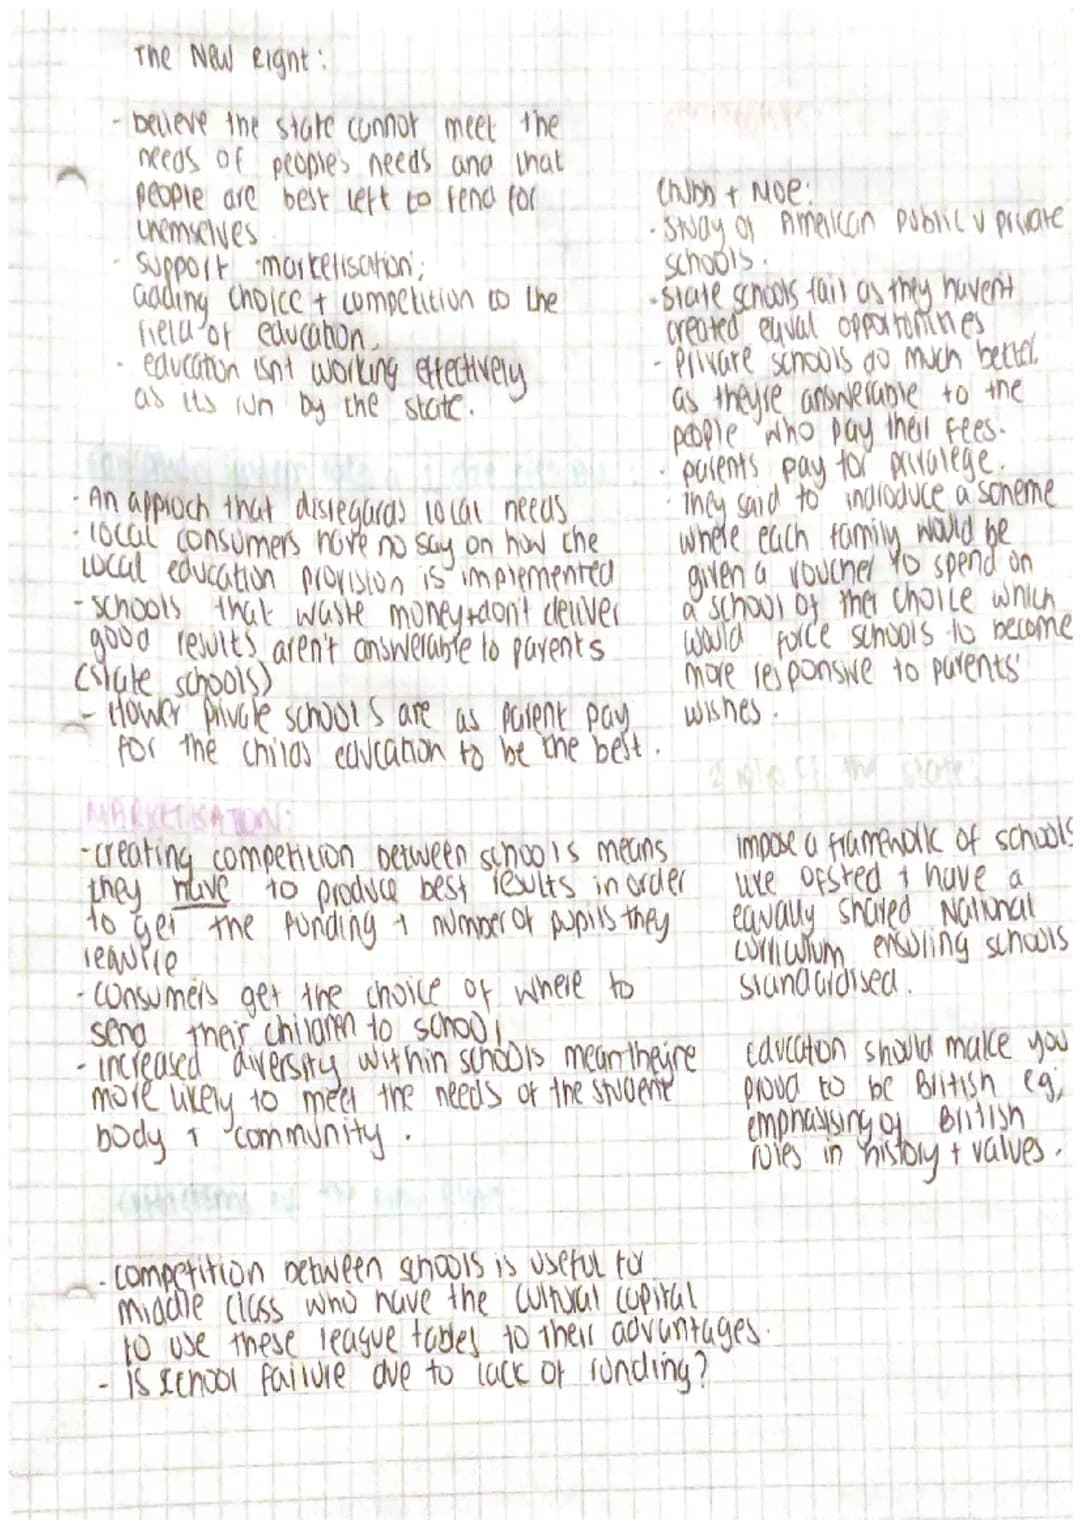 The New Right:
- believe the state cannot meet the
needs of people's needs and that
people are best left to fend for
themselves
- support marketisation;
adding choice + competition to the
field of education.
- education isn't working effectively
as its run by the state.
- An approch that disregards local needs
- local consumers have no say on how the
local education provision is implemented
- schools that waste money + don't deliver
good results aren't answerable to parents
(state schools)
- Hower private schools are as parent pay
for the childs education to be the best.
Chubb + Moe:
- Study of American public v private
schools.
- state schools fail as they havent
created equal opportunities
- Private schools do much better
as theyre answerable to the
people who pay their fees.
- parents pay for privalege.
- They said to indroduce a scheme
where each family would be
given a voucher to spend on
a school of their choice which
would force schools to become
more responsive to parents'
wishes.
role of the state:
MARKETISATION:
- creating competition between schools means
they have to produce best results in order
to get the funding + number of pupils they
require
- consumers get the choice of where to
send their children to school,
- increased diversity within schools mean theyre
more likely to meet the needs of the student
body + community.
impose a framework of schools
like Ofsted + have a
equally shared National
curriculum ensuring schools
standardised.
Education should make you
proud to be British eg,
emphasising of British
roles in history + values.
- competition between schools is useful for
middle class who have the cultural capital
to use these league tables to their advantages.
- is school failure due to lack of funding?